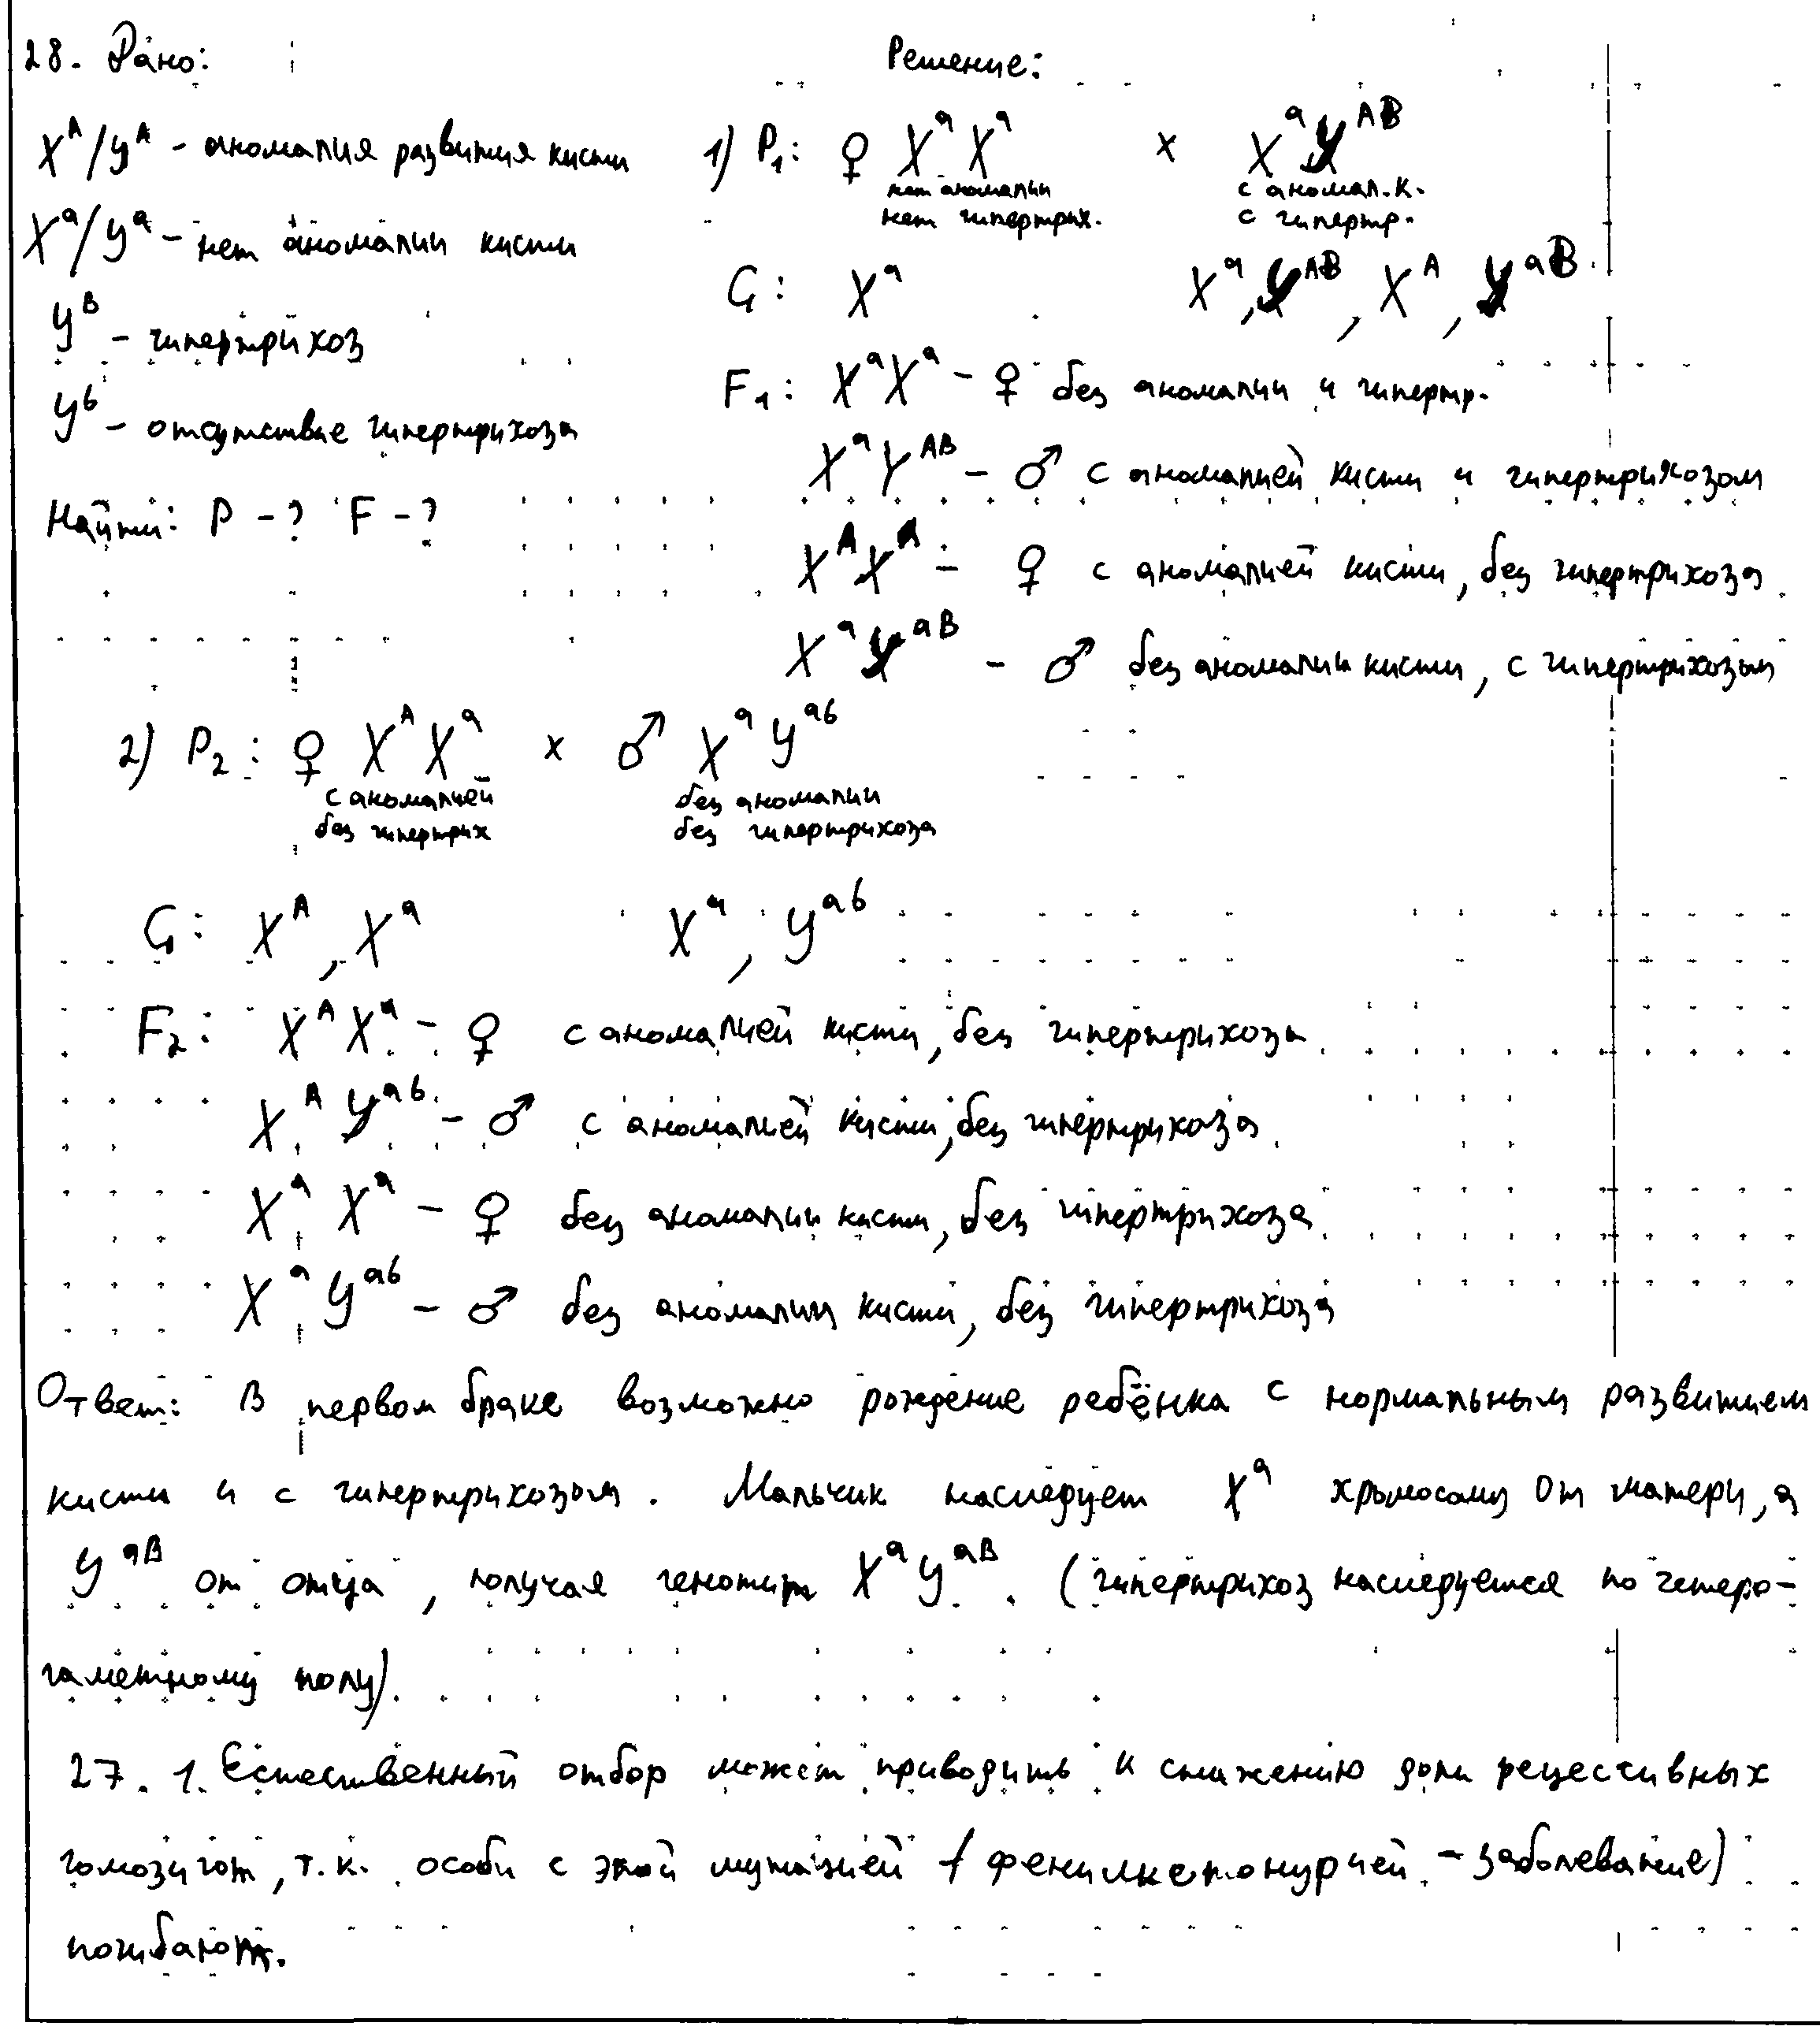 28. Дано:
Решение:
X^A/Y^A - аномалия развития кисти
X^a/Y^a - нет аномалии кисти
Y^B - гипертрихоз
Y^b - отсутствие гипертрихоза
Найти: P - ? F - ?
1) P₁: ♀ X^a X^a × X^a Y^AB
нет аномалии с аномал. к.
нет гипертрих. с гипертр.
G: X^a X^a, Y^AB, X^A, Y^aB
F₁: X^a X^a - ♀ без аномалии и гипертр.
X^a Y^AB - ♂ с аномалией кисти и гипертрихозом
X^A X^a - ♀ с аномалией кисти, без гипертрихоза
X^a Y^aB - ♂ без аномалии кисти, с гипертрихозом
2) P₂: ♀ X^A X^a × ♂ X^a Y^ab
с аномалией без аномалии
без гипертрих без гипертрихоза
G: X^A, X^a X^a, Y^ab
F₂: X^A X^a - ♀ с аномалией кисти, без гипертрихоза
X^A Y^ab - ♂ с аномалией кисти, без гипертрихоза
X^a X^a - ♀ без аномалии кисти, без гипертрихоза
X^a Y^ab - ♂ без аномалии кисти, без гипертрихоза
Ответ: В первом браке возможно рождение ребёнка с нормальным развитием
кисти и с гипертрихозом. Мальчик наследует X^a хромосому от матери, а
Y^aB от отца, получая генотип X^a Y^aB. (гипертрихоз наследуется по гетеро-
гаметному полу).
27. 1. Естественный отбор может приводить к снижению доли рецессивных
гомозигот, т.к. особи с этой мутацией (фенилкетонурией - заболевание)
погибают.